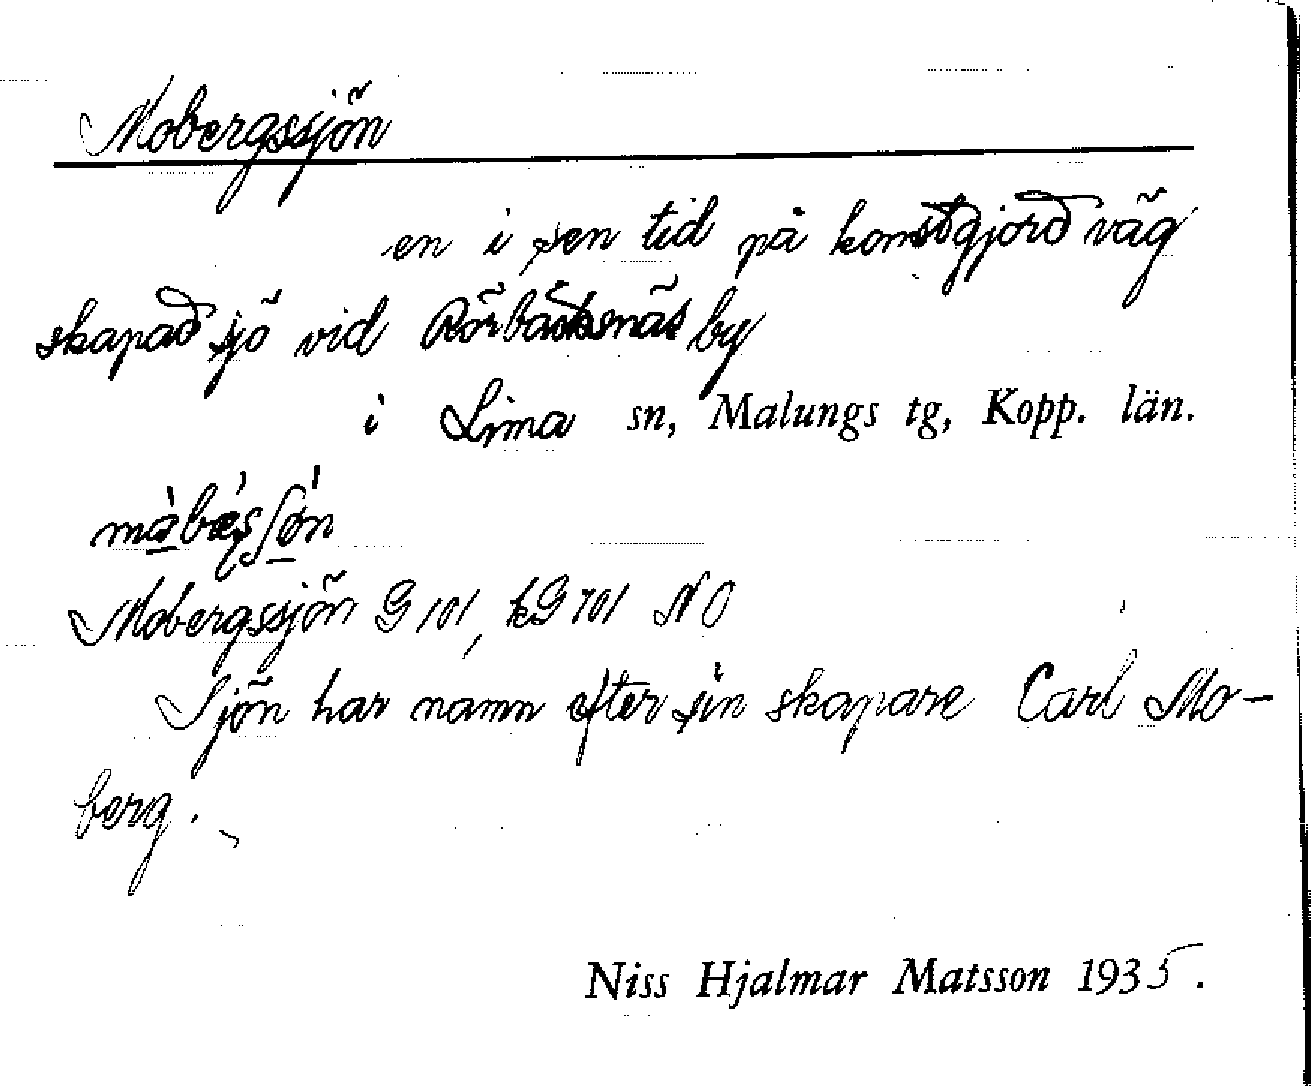 Mobergssjön
en i sen tid på konstgjord väg
skapad sjö vid Rörbäcksnäs by
i Lima sn, Malungs tg, Kopp. län.
Mobergssjön G 101, kG 701 NO
Sjön har namn efter sin skapare Carl Mo-
berg.
Niss Hjalmar Matsson 1935.